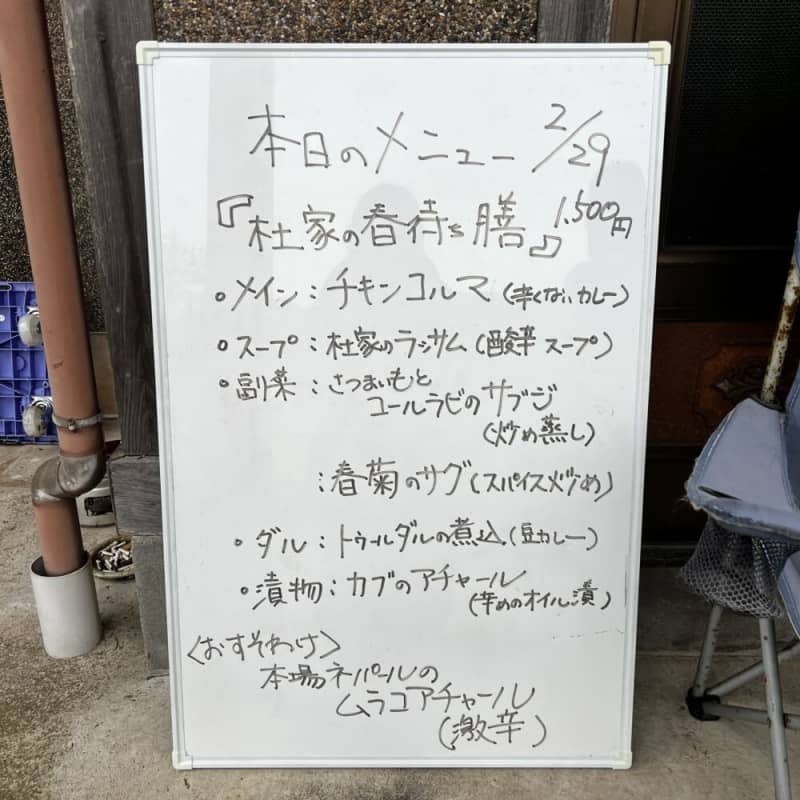 本日のメニュー 2/29
『杜家の春待ち膳』 1,500円
・メイン：チキンコルマ（辛くないカレー）
・スープ：杜家のラッサム（酸辛スープ）
・副菜：さつまいもと
コールラビのサブジ
（炒め蒸し）
：春菊のサグ（スパイス炒め）
・ダル：トゥールダルの煮込（豆カレー）
・漬物：カブのアチャール
（辛めのオイル漬）
〈おすそわけ〉
本場ネパールの
ムラコアチャール
（激辛）